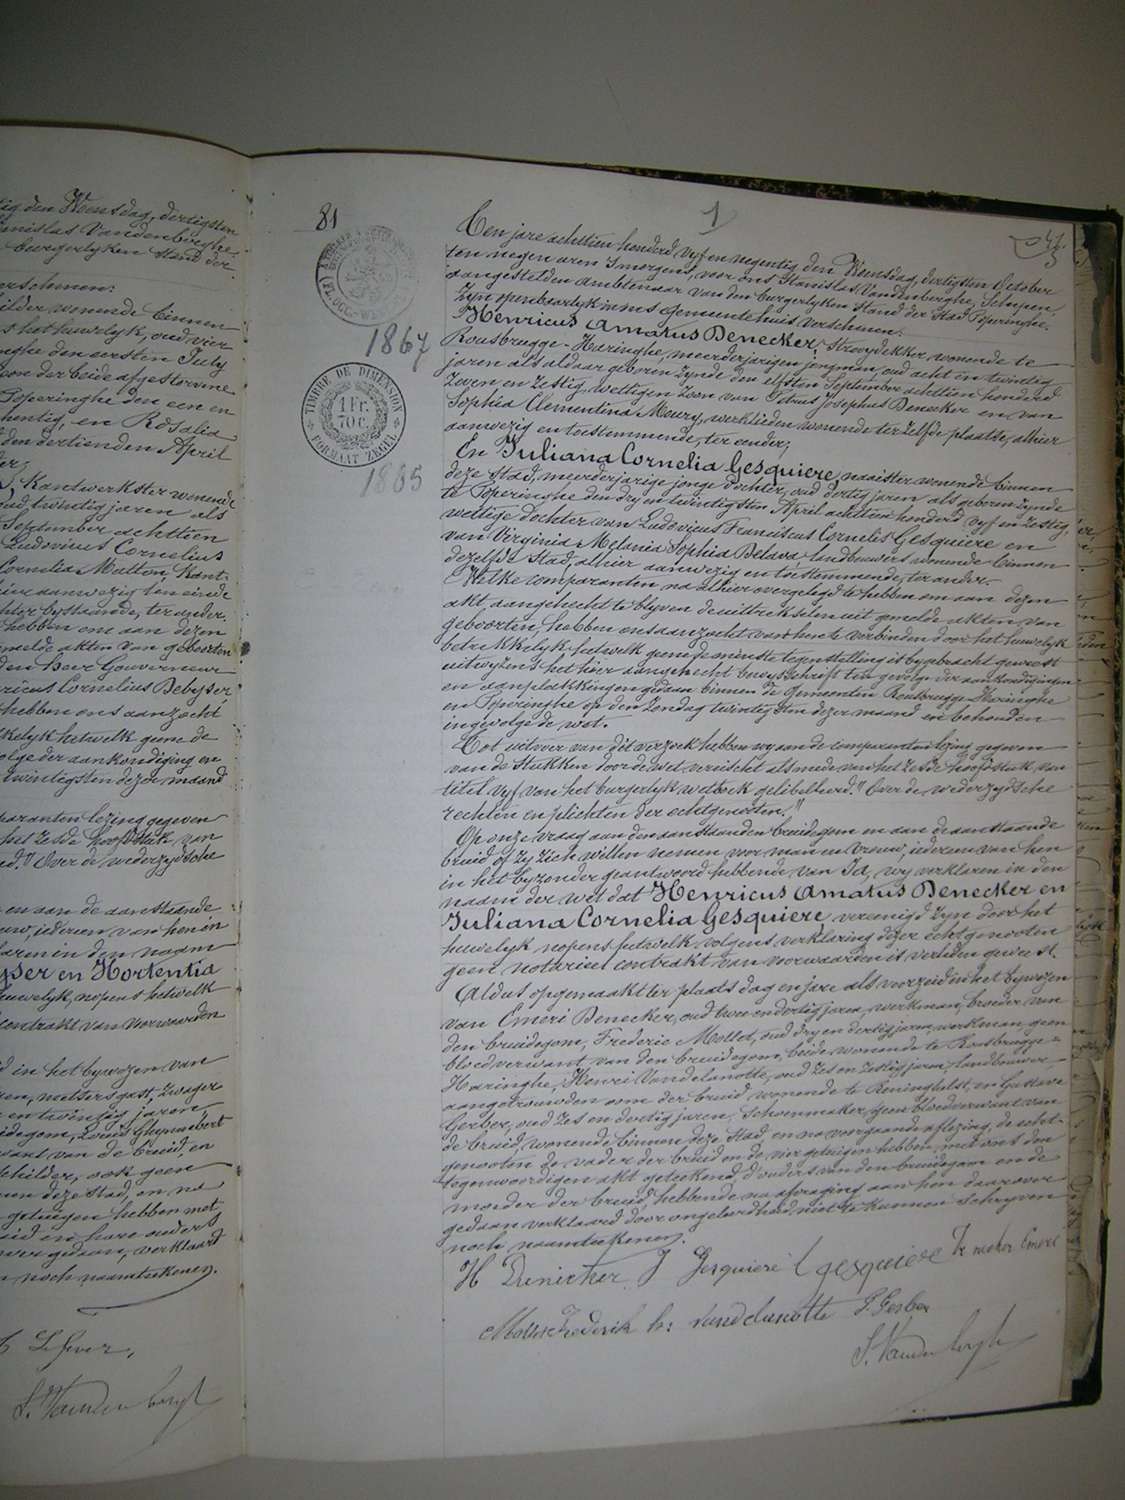 tig den Woensdag, dertigsten
Stanislas Vandenberghe,
burgerlyken Stand der
verschenen:
schilder wonende binnen
het huwelyk, oud vier
Peperinghe den eersten July
zoon der beide afgestorvene
Poperinghe den een en
tachentig, en Rosalia
den dertienden April
Kantwerkster wonende
oud twintig jaren als
September achttien
Ludovicus Cornelius
Cornelia Matton, Kant-
hier aanwezig ten einde
hebben om aan dezen
gemelde akten van geboorten
den Heer Gouverneur
ricus Cornelius Debyser,
hebben ons aanzocht
kelyk hetwelk geene de
volge der aankondiging en
twintigsten dezer maand
paranten lezing gegeven
het zesde hoofdstuk van
eerd." Over de wederzydsche
en aan de aanstaande
vrouw, iederen van hen in
klaren in den naam
yser en Hortentia
huwelyk, nopens hetwelk
contrakt van voorwaarden
d in het bywezen van
en twintig jaren
bruidegom, Louis Ghynnebert
want van de bruid, en
schilder, ook geen
nen deze stad, en na
getuigen hebben met
bruid en hare ouders
over gedaan, verklaard
noch naamteekenen.
Lefever,
S. Vandenberghe
81
1
TIMBRE DE DIMENSION
1 Fr.
70 C.
FORMAAT ZEGEL
1867
1865
Ten jare achttien honderd vyf en negentig den Woensdag, dertigsten October
ten negen uren 's morgens, voor ons Stanislas Vandenberghe, Schepen,
aangestelden ambtenaar van den burgerlyken Stand der Stad Poperinghe,
Zyn openbaarlyk in ons gemeentehuis verschenen:
Henricus Amatus Denecker, strooydekker wonende te
Rousbrugge-Haringhe, meerderjarigen jongman, oud acht en twintig
jaren als aldaar geboren zynde den elfsten September achttien honderd
zeven en zestig, wettigen zoon van Petrus Josephus Denecker en van
Sophia Clementina Meury, werklieden wonende ter zelfde plaatse, alhier
aanwezig en toestemmende, ter eender;
En Juliana Cornelia Gesquiere, naaister wonende binnen
deze stad, meerderjarige jonge dochter, oud dertig jaren als geboren zynde
te Poperinghe den dry en twintigsten April achttien honderd vyf en zestig,
wettige dochter van Ludovicus Franciscus Cornelis Gesquiere en
van Virginia Melania Sophia Delava landbouwers wonende binnen
dezelfde Stad, alhier aanwezig en toestemmende, ter ander.
Welke comparanten na alhier overgelegd te hebben om aan dezen
akt aangehecht te blyven de uittreksels uit gemelde akten van
geboorten, hebben ons aanzocht van hen te verbinden door het huwelyk
betrekkelyk hetwelk geene de minste tegenstelling is bygebracht geweest
uitwyzens het hier aangehecht bewysschrift ten gevolge der aankondigingen
en aanplakkingen gedaan binnen de Gemeenten Rousbrugge-Haringhe
en Poperinghe op den Zondag twintigsten dezer maand en behouden
ingevolge de wet.
Tot uitvoer van dit verzoek hebben wy aan de comparanten lezing gegeven
van de Stukken door de wet vereischt als mede van het zesde hoofdstuk van
titel vyf van het burgerlyk wetboek gelibelleerd:" Over de wederzydsche
rechten en plichten der echtgenooten."
Op onze vraag aan den aanstaanden bruidegom en aan de aanstaande
bruid of zy zich willen nemen voor man en vrouw, iederen van hen
in het byzonder geantwoord hebbende van Ja, wy verklaren in den
naam der wet dat Henricus Amatus Denecker en
Juliana Cornelia Gesquiere vereenigd zyn door het
huwelyk nopens hetwelk volgens verklaring dezer echtgenooten
geen notarieel contrakt van voorwaarden is verleden geweest.
Aldus opgemaakt ter plaats dag en jare als voorzeid in het bywezen
van Emeri Denecker, oud twee en dertig jaren, werkman, broeder van
den bruidegom, Frederic Mollet, oud dry en dertig jaren, werkman, geen
bloedverwant van den bruidegom, beide wonende te Rousbrugge-
Haringhe, Henri Vandelanotte, oud zes en zestig jaren, landbouwer,
aangetrouwden oom der bruid wonende te Reninghelst, en Gustave
Gerber, oud zes en dertig jaren, Schoenmaker, geen bloedverwant van
de bruid, wonende binnen deze Stad, en na voorgaande aflezing, de echt-
genooten de vader der bruid en de vier getuigen hebben met ons den
tegenwoordigen akt geteekend, d'ouders van den bruidegom en de
moeder der bruid, hebbende na afvraging aan hen daarover
gedaan verklaard door ongeleerdheid niet te kunnen schryven
noch naamteekenen.
H Denecker J Gesquiere L Gesquiere Denecker Emeri
Mollet Frederik h: vandelanotte G. Gerber
S. Vandenberghe